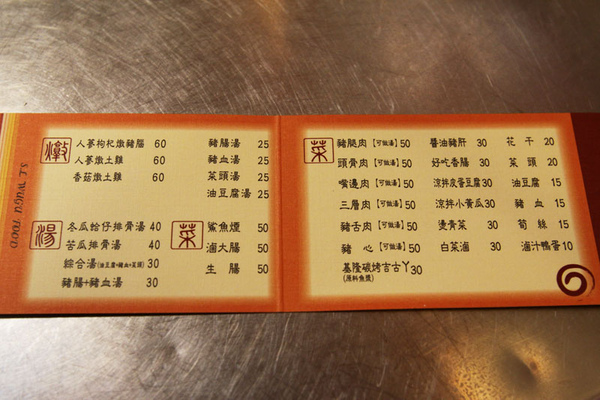 燉
人蔘枸杞燉豬腦 60
人蔘燉土雞 60
香菇燉土雞 60
豬腸湯 25
豬血湯 25
菜頭湯 25
油豆腐湯 25
湯
冬瓜蛤仔排骨湯 40
苦瓜排骨湯 40
綜合湯(油豆腐+豬血+菜頭) 30
豬腸+豬血湯 30
菜
鯊魚煙 50
滷大腸 50
生腸 50
菜
豬腮肉【可做湯】50
頭骨肉【可做湯】50
嘴邊肉【可做湯】50
三層肉【可做湯】50
豬舌肉【可做湯】50
豬心【可做湯】50
基隆碳烤吉古ㄚ30
(原料魚漿)
醬油豬肝 30
好吃香腸 30
涼拌皮蛋豆腐30
涼拌小黃瓜30
燙青菜 30
白菜滷 30
花干 20
菜頭 20
油豆腐 15
豬血 15
筍絲 15
滷汁鴨蛋10